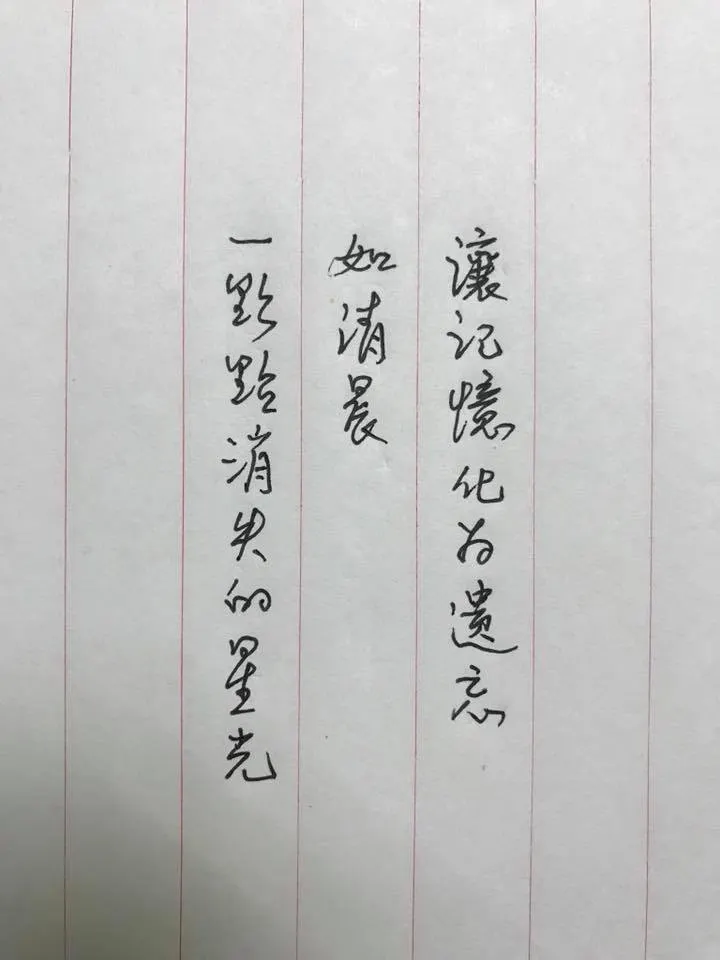 讓記憶化为遺忘
如清晨
一點點消失的星光